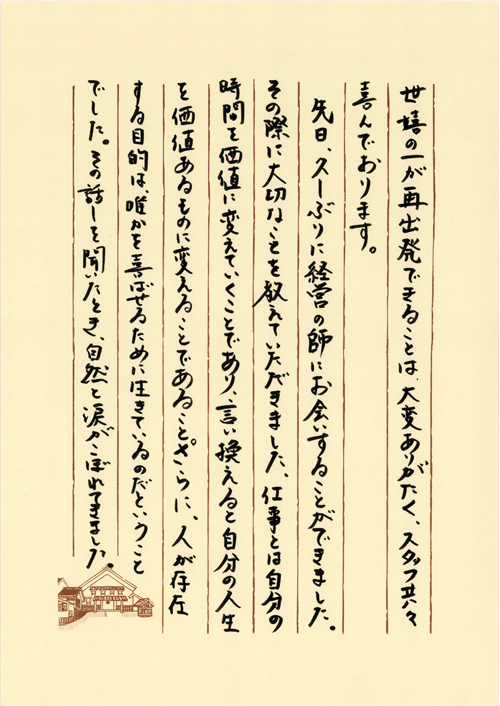 世嬉の一が再出発できることは、大変ありがたく、スタッフ共々
喜んでおります。
先日、久しぶりに経営の師にお会いすることができました。
その際に大切なことを教えていただきました。仕事とは自分の
時間を価値に変えていくことであり、言い換えると自分の人生
を価値あるものに変えることであること。さらに、人が存在
する目的は、誰かを喜ばせるために生きているのだということ
でした。その話しを聞いたとき、自然と涙がこぼれてきました。